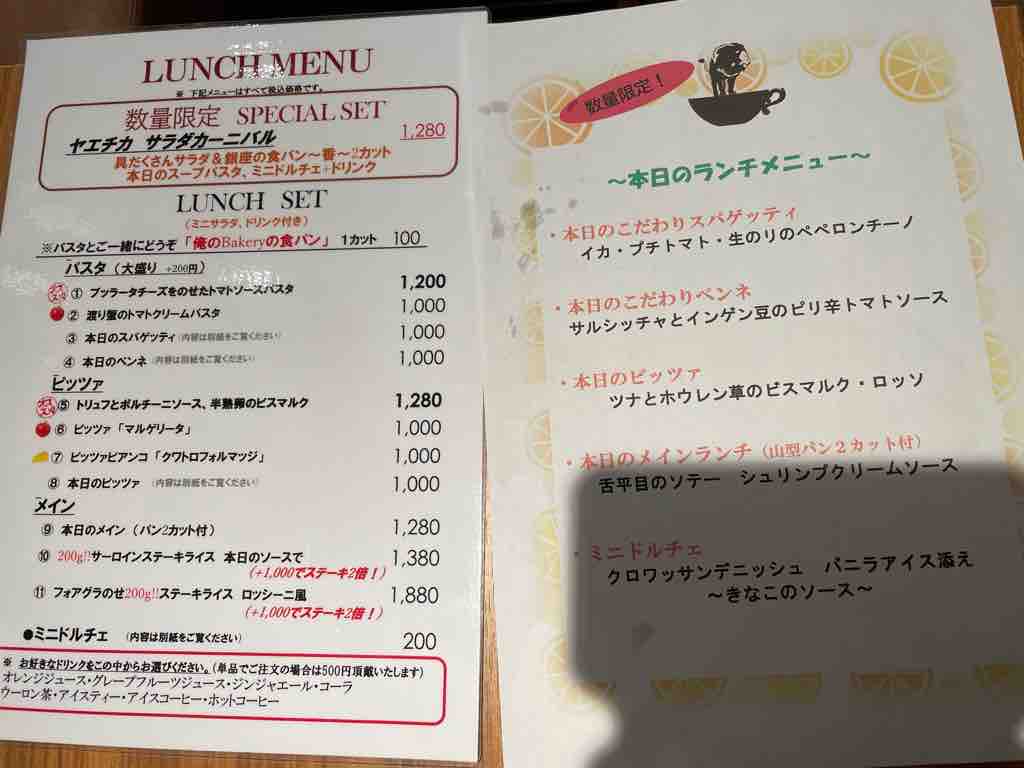 LUNCH MENU
※ 下記メニューはすべて税込価格です。
数量限定 SPECIAL SET
ヤエチカ サラダカーニバル 1,280
具だくさんサラダ＆銀座の食パン～一番～2カット
本日のスープパスタ、ミニドルチェ+ドリンク
LUNCH SET
（ミニサラダ、ドリンク付き）
※パスタとご一緒にどうぞ「俺のBakeryの食パン」 1カット 100
パスタ（大盛り +200円）
① ブッラータチーズをのせたトマトソースパスタ 1,200
② 渡り蟹のトマトクリームパスタ 1,000
③ 本日のスパゲッティ（内容は別紙をご覧ください） 1,000
④ 本日のペンネ（内容は別紙をご覧ください） 1,000
ピッツァ
⑤ トリュフとポルチーニソース、半熟卵のビスマルク 1,280
⑥ ピッツァ「マルゲリータ」 1,000
⑦ ピッツァビアンコ「クワトロフォルマッジ」 1,000
⑧ 本日のピッツァ （内容は別紙をご覧ください） 1,000
メイン
⑨ 本日のメイン（パン2カット付） 1,280
⑩ 200g!!サーロインステーキライス 本日のソースで 1,380
（+1,000でステーキ2倍！）
⑪ フォアグラのせ200g!!ステーキライス ロッシーニ風 1,880
（+1,000でステーキ2倍！）
●ミニドルチェ （内容は別紙をご覧ください） 200
※ お好きなドリンクをこの中からお選びください。（単品でご注文の場合は500円頂戴いたします）
オレンジジュース・グレープフルーツジュース・ジンジャエール・コーラ
ウーロン茶・アイスティー・アイスコーヒー・ホットコーヒー
数量限定！
～本日のランチメニュー～
・本日のこだわりスパゲッティ
イカ・プチトマト・生のりのペペロンチーノ
・本日のこだわりペンネ
サルシッチャとインゲン豆のピリ辛トマトソース
・本日のピッツァ
ツナとホウレン草のビスマルク・ロッソ
・本日のメインランチ（山型パン２カット付）
舌平目のソテー シュリンプクリームソース
・ミニドルチェ
クロワッサンデニッシュ バニラアイス添え
～きなこのソース～